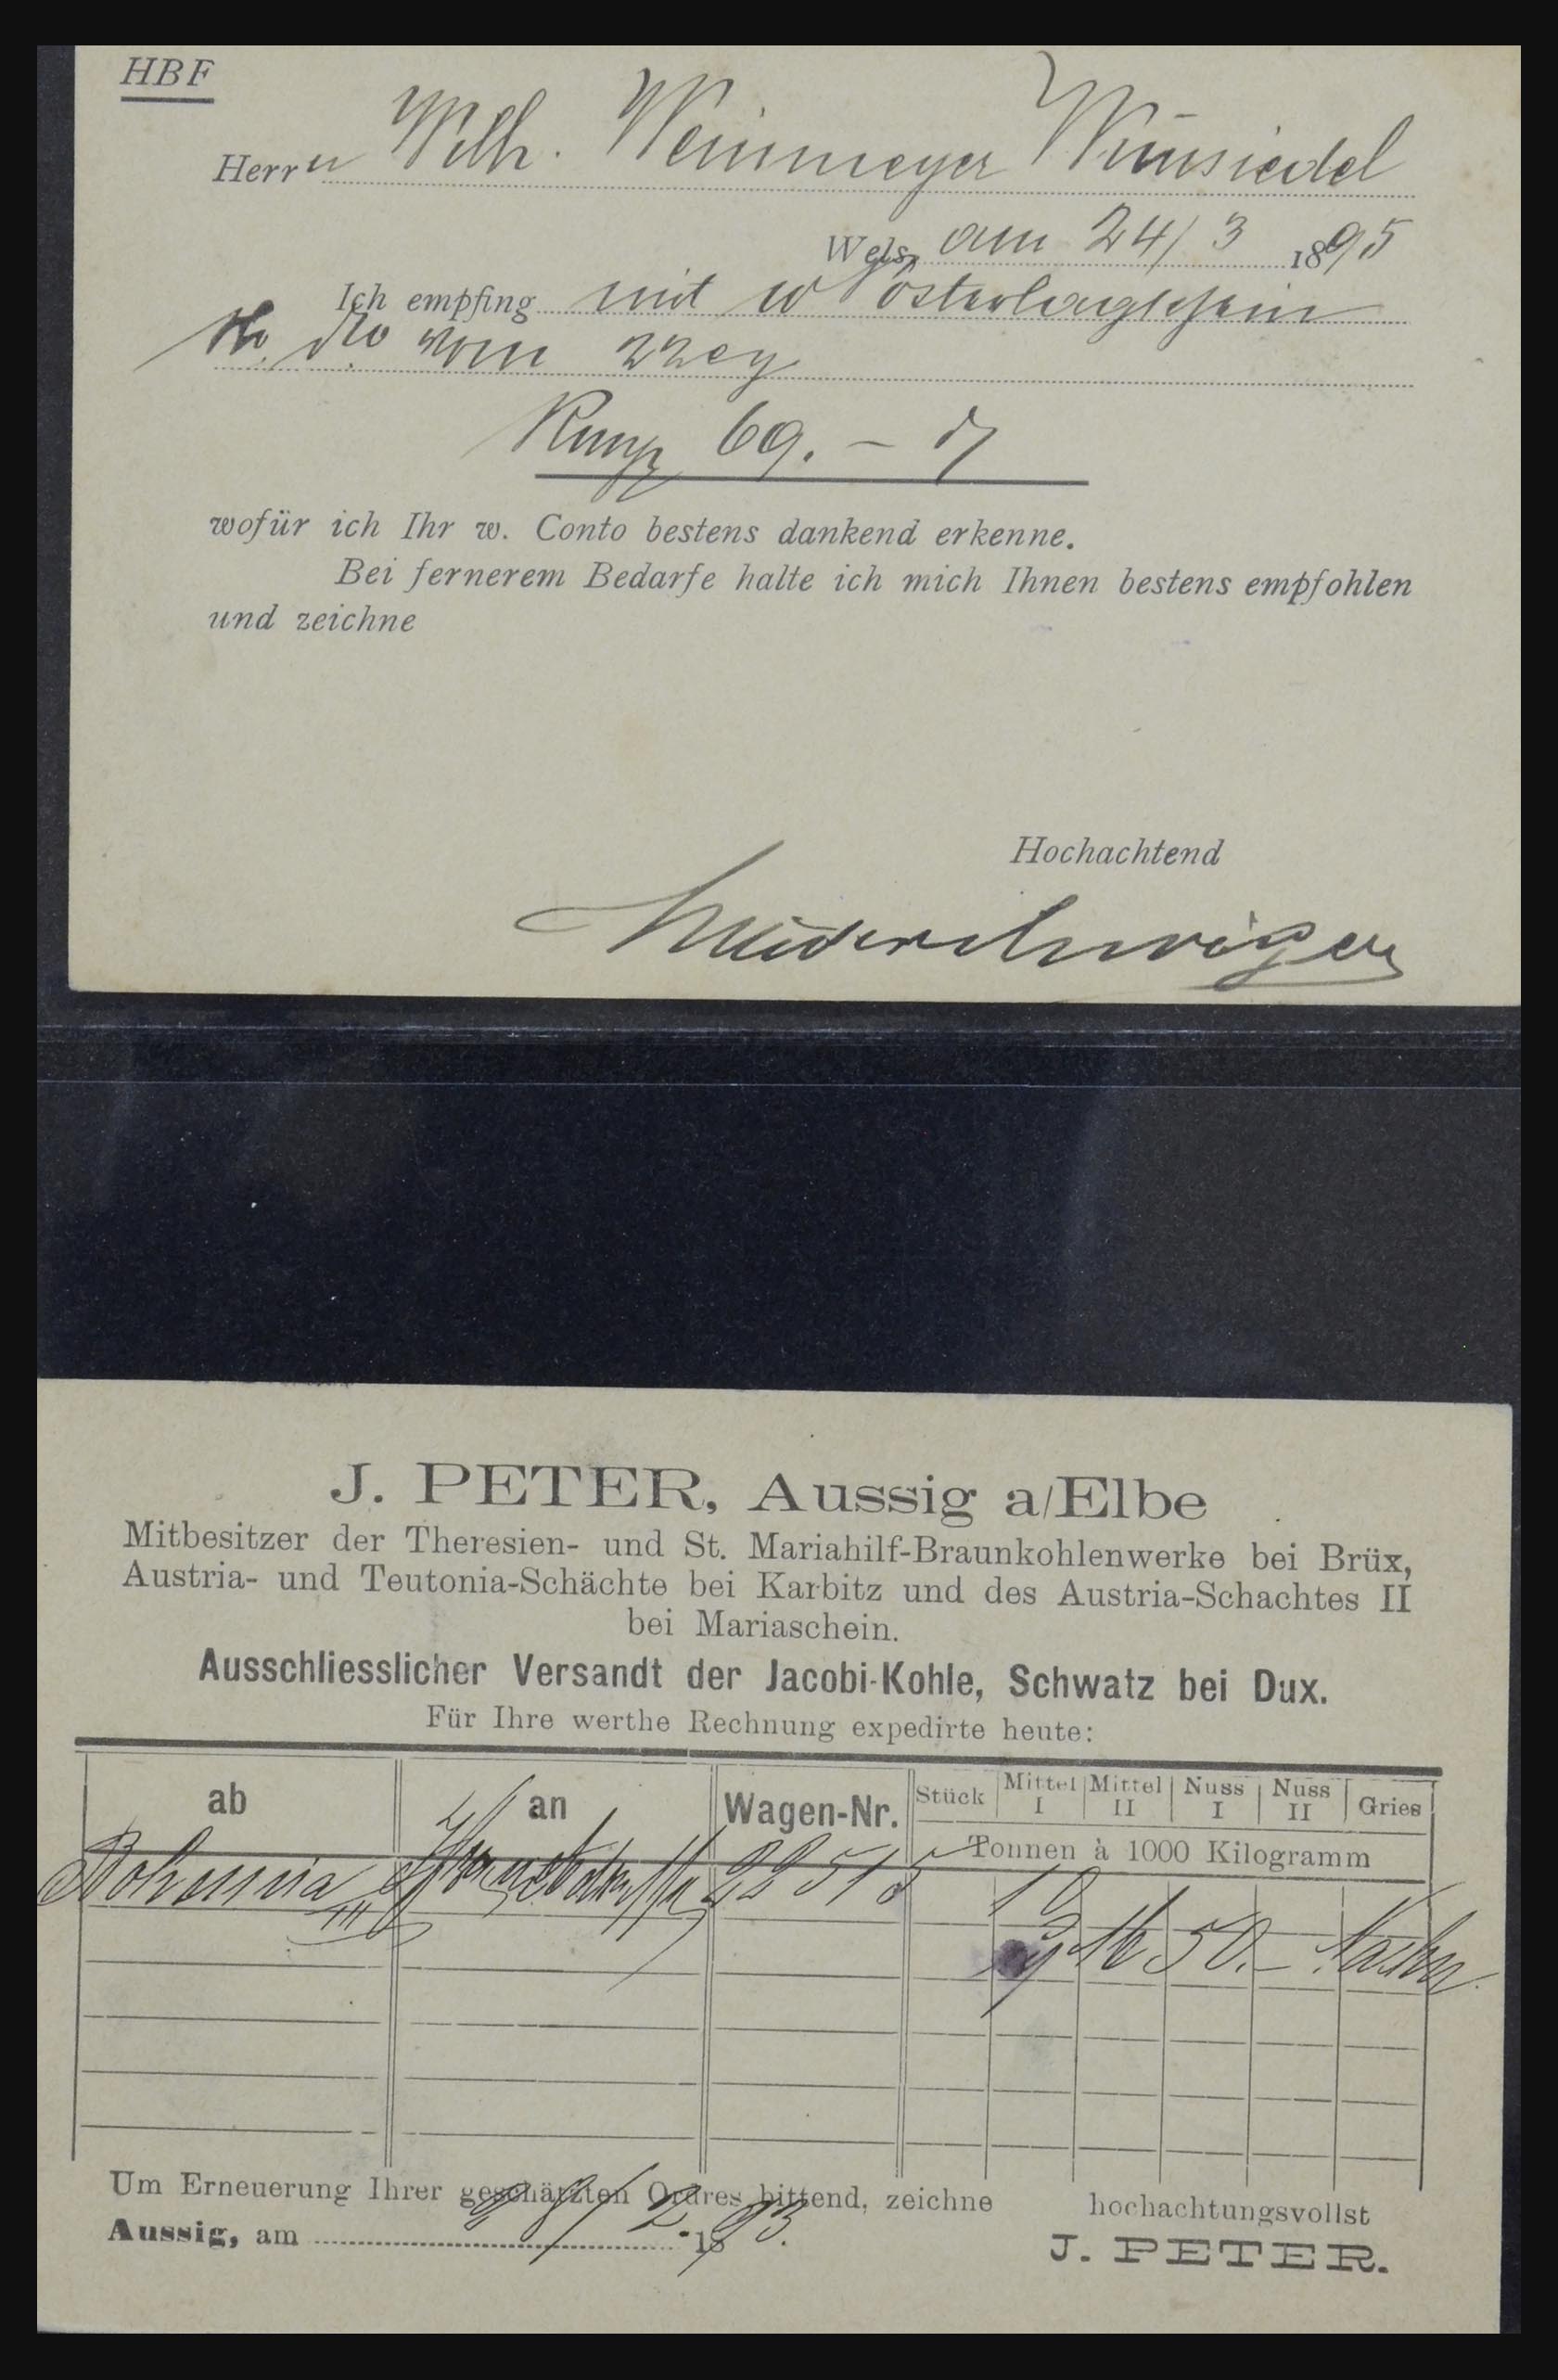 HBF
Herrn Wilh. Weinmeyer Wunsiedel
Wels, am 24/3 1895
Ich empfing mit w
vom 22
69.–
wofür ich Ihr w. Conto bestens dankend erkenne.
Bei fernerem Bedarfe halte ich mich Ihnen bestens empfohlen
und zeichne
Hochachtend
J. PETER, Aussig a/Elbe
Mitbesitzer der Theresien- und St. Mariahilf-Braunkohlenwerke bei Brüx,
Austria- und Teutonia-Schächte bei Karbitz und des Austria-Schachtes II
bei Mariaschein.
Ausschliesslicher Versandt der Jacobi-Kohle, Schwatz bei Dux.
Für Ihre werthe Rechnung expedirte heute:
ab an Wagen-Nr. Stück Mittel I Mittel II Nuss I Nuss II Gries
Tonnen à 1000 Kilogramm
Bohemia III 22515 10
50.–
Um Erneuerung Ihrer geschätzten Ordres bittend, zeichne hochachtungsvollst
Aussig, am 28/2. 1893.
J. PETER.